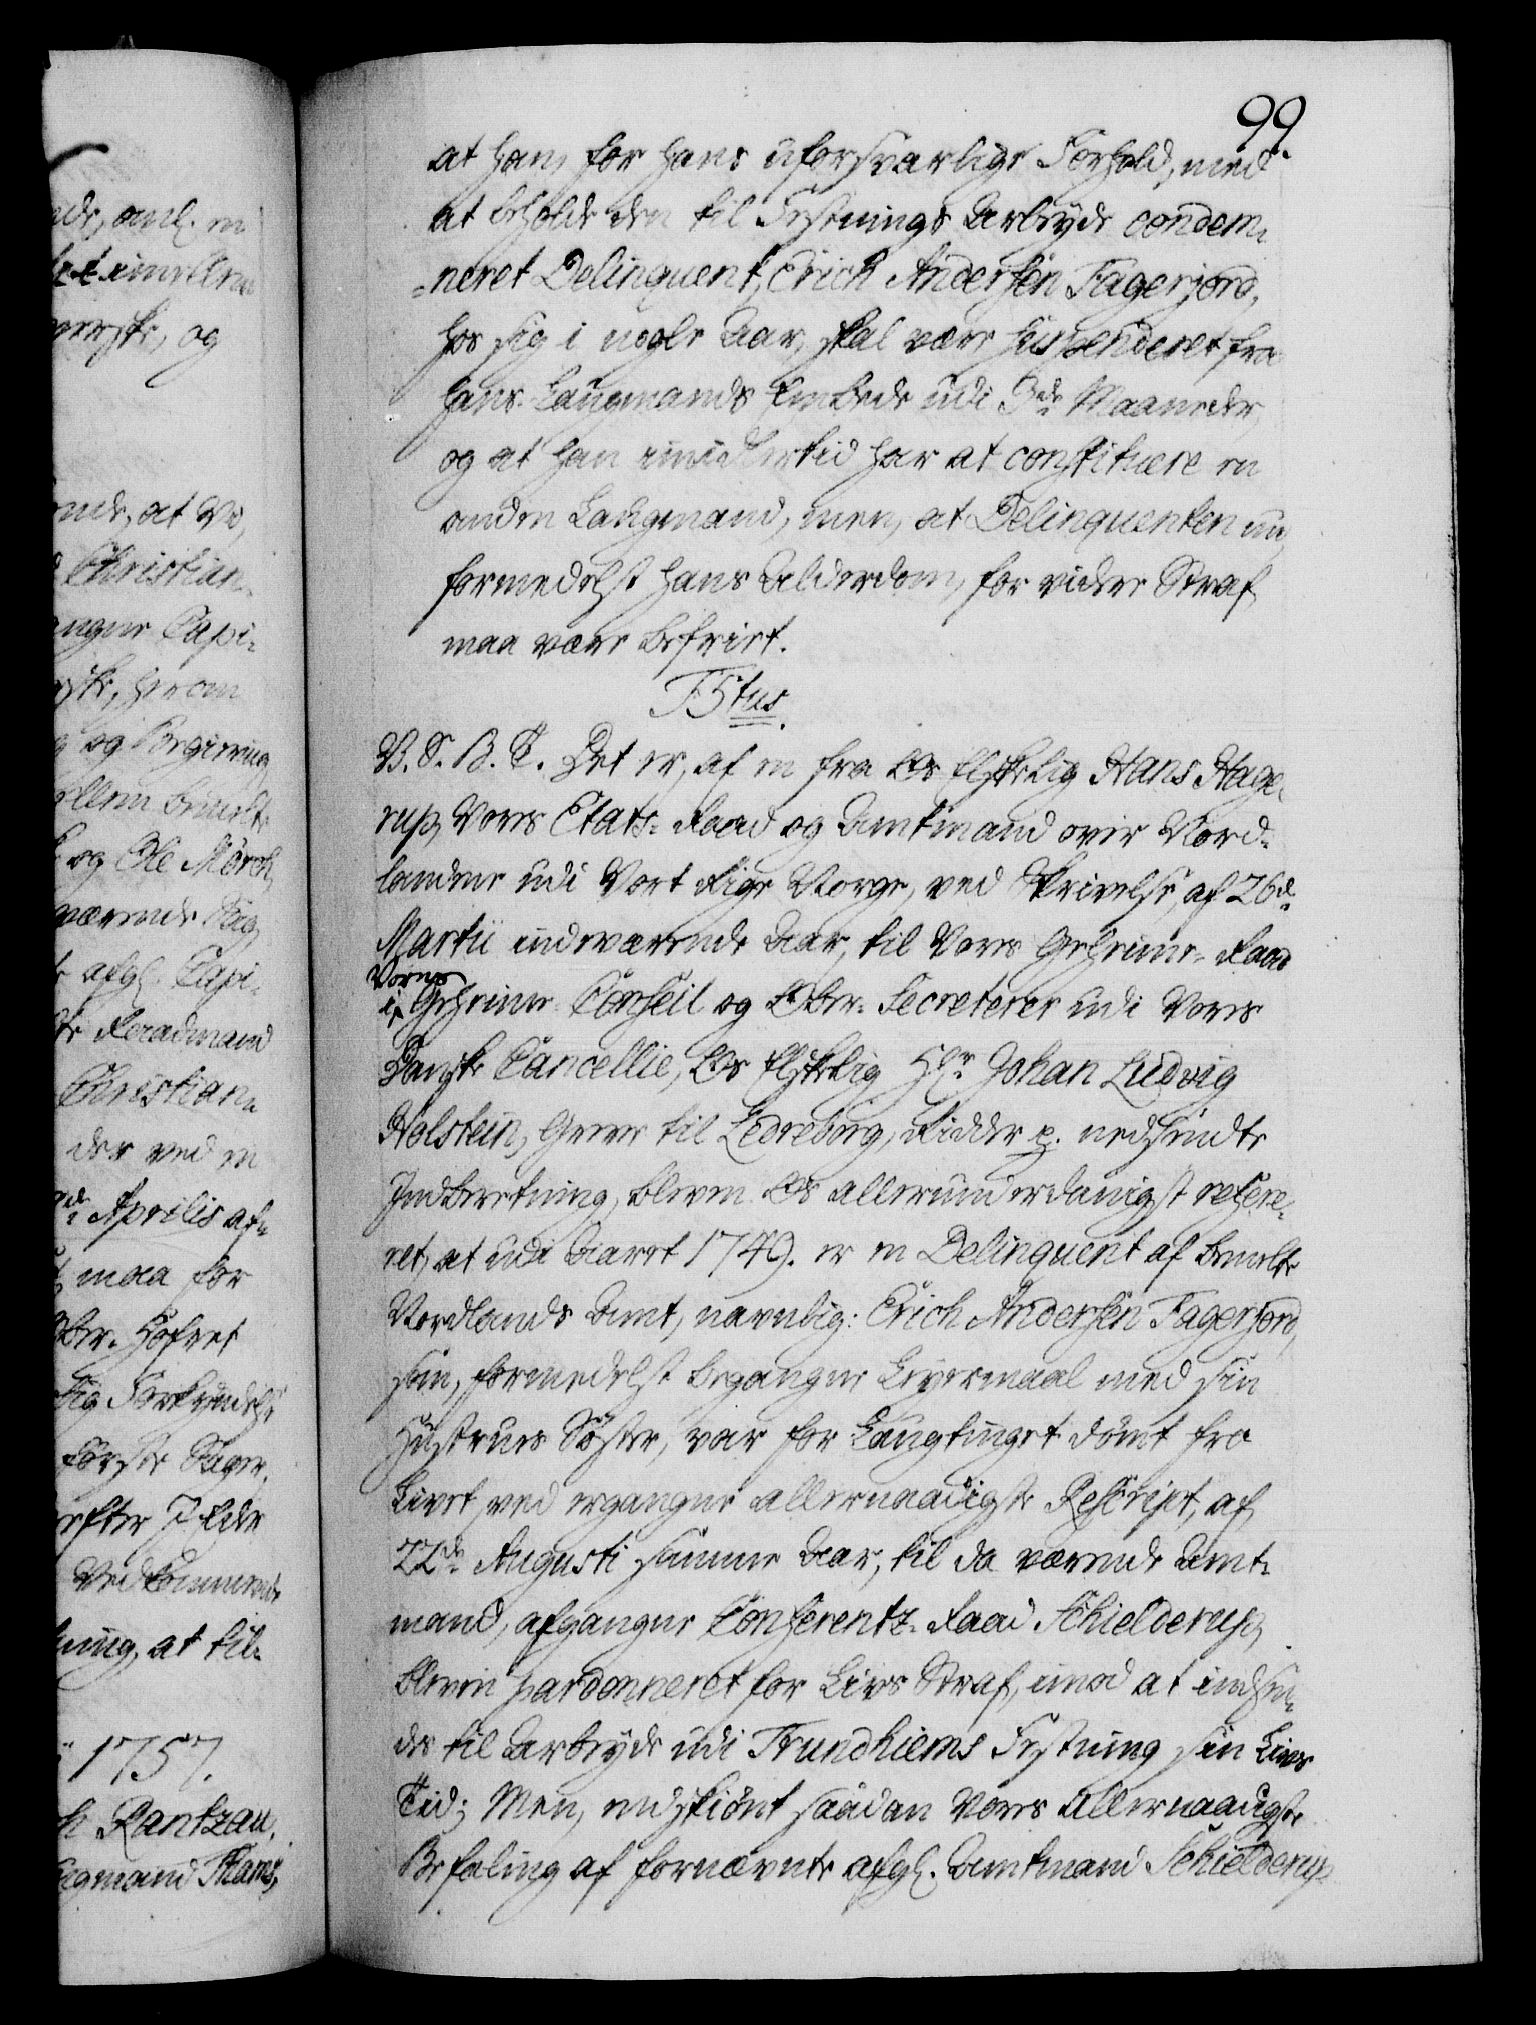 99.
at han, for hans uforsvarlige Forhold, med
at beholde den til Festnings Arbeyde condem-
-neret Delinquent, Erich Andersen Fagerjord,
hos sig i nogle Aar, skal være suspenderet fra
hans Laugmands Embede udi 3de Maaneder,
og at han imidlertid har at constituere en
anden Laugmand, men, at Delinquenten nu,
formedelst hans Alderdom, for videre Straf
maa være befriet.
F5tus.
V. S. B. T. Det er, af en fra Os Elskelig Hans Hage-
rup, Vores Etats-Raad og Amtmand over Nord-
landene udi Vort Rige Norge, ved Skrivelse, af 26de
Martii indeværende Aar, til Vores Geheime-Raad
Vores
i Geheime Conseil og Ober-Secreterer udi Vores
Danske Cancellie, Os Elskelig Hr. Johan Ludvig
Holstein, Greve til Ledreborg, Ridder p. nedsendte
Indberetning, bleven Os allerunderdanigst refere-
ret, at udi Aaret 1749. er en Delinquent af bemelte
Nordlands Amt, navnlig: Erich Andersen Fagerjord,
som, formedelst begangne Leyermaal med sin
Hustrues Søster, var for Laugtinget dømt fra
Livet, ved ergangne allernaadigste Rescript, af
22de Augusti samme Aar, til da værende Amt-
mand, afgangne Conferentz-Raad Schielderup,
bleven pardonneret for Livs Straf, imod at indsen-
des til Arbeyde udi Trundhiems Festning sin Livs
Tid; Men, endskiønt saadan Vores Allernaadigste
Befaling af fornævnte afgl. Amtmand Schielderup
ade, anl. en
og
at Vi,
Christian-
Capi-
herom
og
og Ole Mörch
værende
afgl. Capi-
Raadmand
Christian-
der ved en
Aprilis af-
maa for
Ober-Hofret
første
efter
at til-
1757.
Rantzau.